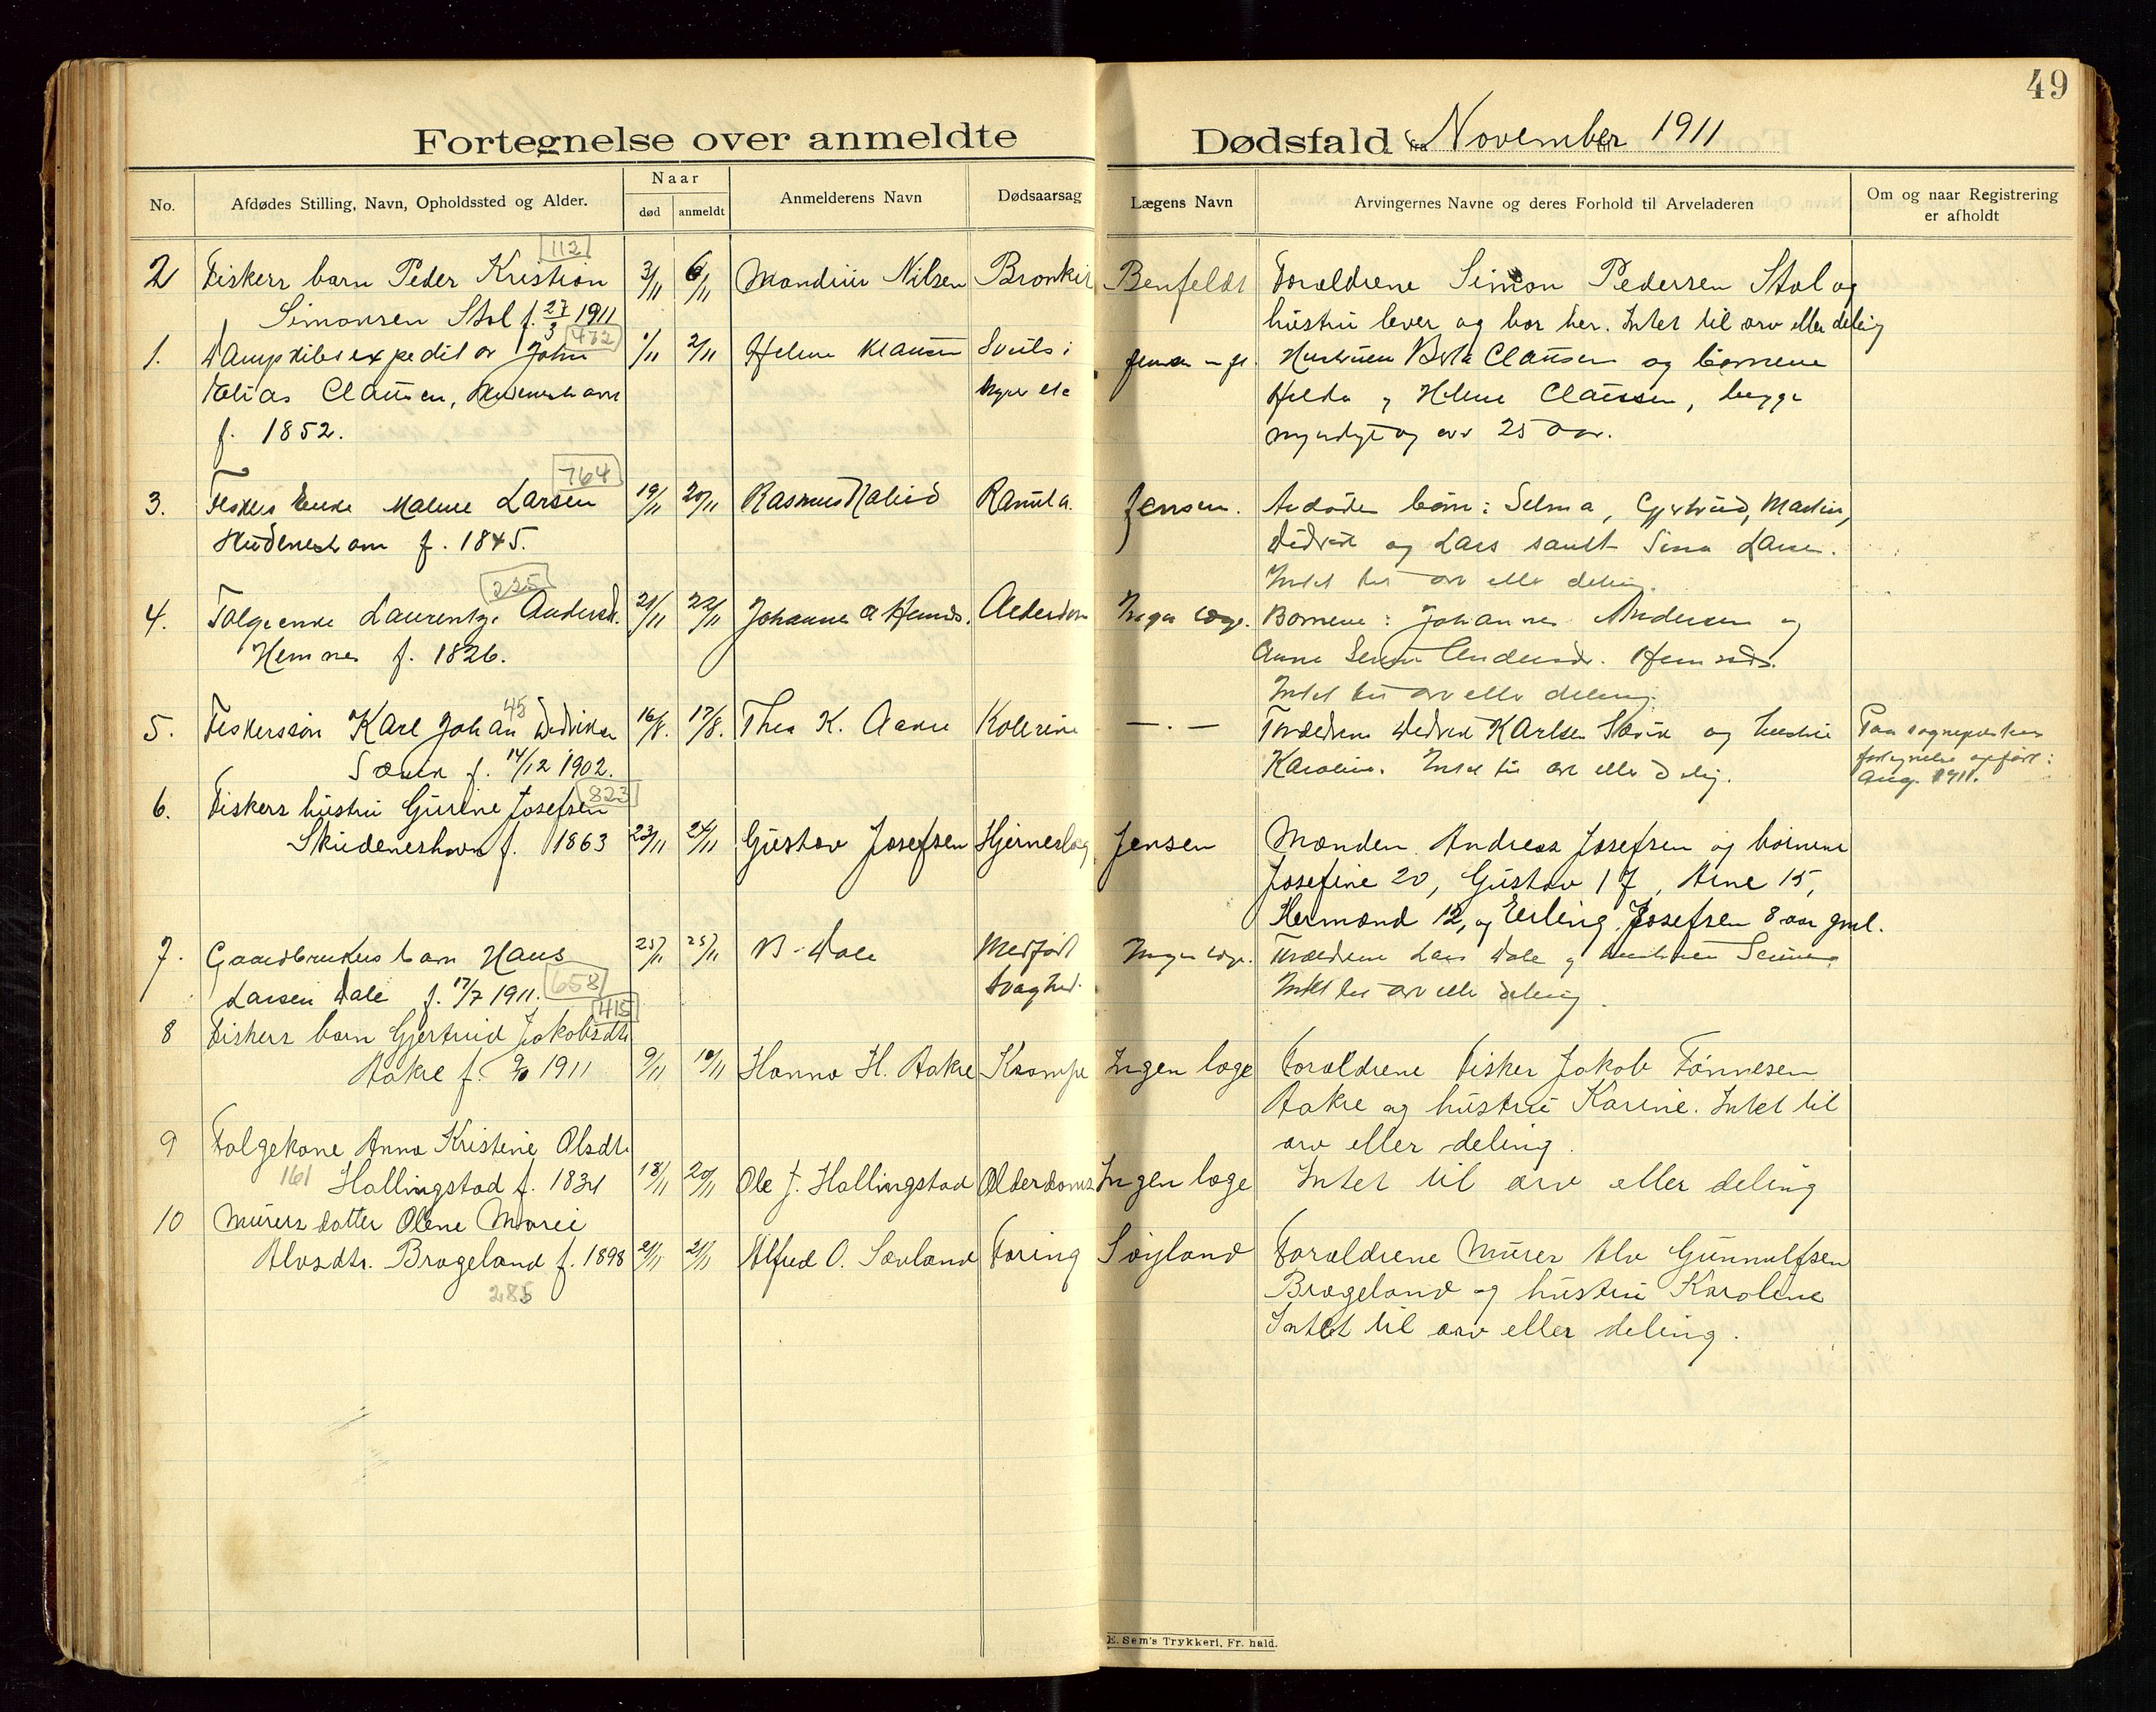 49
Fortegnelse over anmeldte Dødsfald fra November 1911
No.
Afdødes Stilling, Navn, Opholdssted og Alder.
Naar
død
anmeldt
Anmelderens Navn
Dødsaarsag
Lægens Navn
Arvingernes Navne og deres Forhold til Arveladeren
Om og naar Registrering
er afholdt
112
2 Fiskers barn Peder Kristian 3/11 6/11 Nilsen Bronkit Benfeldt Forældrene Simon Pedersen Stol og
Simonsen Stol f. 27/3 1911 hustru lever og bor her. Intet til arv eller deling
472
1. Dampskibsexpeditør John 1/11 2/11 Helene Klausen Hustruen Clausen og børnene
Elias Clausen, f. 1852. Helda og Helene Claussen, begge
myndige og over 25 Aar.
764
3. Fiskers Enke Malene Larsen 19/11 20/11 Rasmus Jensen. Avdødes børn: Selma, Gjertrud, Martin,
Skudeneshavn f. 1845. Didrik og Lars samt Sina Larsen.
Intet til arv eller deling.
225
4. Folgeenke Laurentze Andersd. 21/11 22/11 Johannes A. Hemnes. Alderdom Ingen læge. Børnene: Johannes Andersen og
Hemnes f. 1826. Anne Andersdr. Hemnes.
Intet til arv eller deling.
45
5. Fiskersøn Karl Johan Didriksen 16/8. 17/8. Thea K. Kolerine — . — Forældrene Didrik Karlsen og hustru Paa sogneprestens
f. 14/12 1902. Karoline. Intet til arv eller deling. fortegnelse opført i
Aug. 1911.
823
6. Fiskers hustru Gurine Josefsen
Skudeneshavn f. 1863 23/11 24/11 Gustav Josefsen Hjerneslag Jensen Manden Andreas Josefsen og børnene
Josefine 20, Gustav 17, Arne 15,
Hermand 12, og Erling Josefsen 8 aar gml.
7. Gaardbrukers barn Hans 25/11 25/11 B. Dale Medført Ingen læge. Forældrene Lars Dale og hustruen
Larsen Dale f. 17/7 1911. 658 svaghed. Intet til arv eller deling.
415
8 Fiskers barn Gjertrud Jakobsdtr.
Aakre f. 1911 9/11 10/11 Hanna H. Aakre Krampe Ingen læge Forældrene Fisker Jakob Tønnesen
Aakre og hustru Karine. Intet til
arv eller deling.
9 Folgekone Anna Kristine Olsdtr.
161 Hallingstad f. 1834 18/11 20/11 Ole J. Hallingstad Alderdoms Ingen læge Intet til arv eller deling
10 Murers datter Olene Marie
Alvsdtr. Brageland f. 1898 21/11 21/11 Alfred O. Søvland Tæring Søyland Forældrene Murer Alv Gunnulfsen
285 Brageland og hustru Karoline
Intet til arv eller deling.
E. Sem's Trykkeri, Fr. hald.